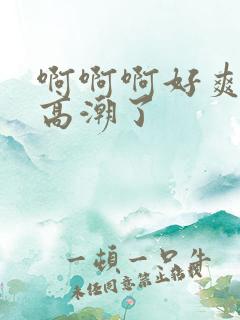 啊啊啊好爽
高潮了
一顿一口牛
未经同意禁止转载